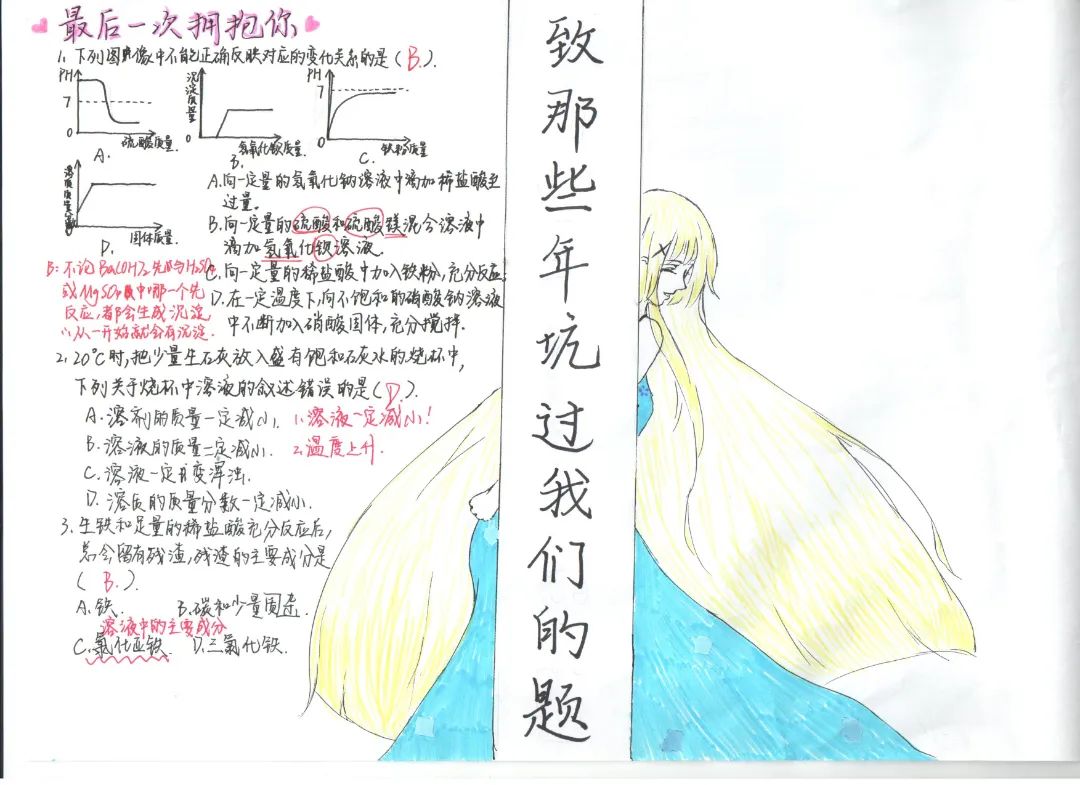 最后一次拥抱你
1. 下列图像中不能正确反映对应的变化关系的是（B.）.
PH
7
0
硫酸质量.
A.
沉淀质量
0
氢氧化钡质量.
B.
PH
7
0
铁粉质量
C.
溶质质量分数
0
固体质量.
D.
A.向一定量的氢氧化钠溶液中滴加稀盐酸至
过量。
B.向一定量的硫酸和硫酸镁混合溶液中
滴加氢氧化钡溶液.
C.向一定量的稀盐酸中加入铁粉,充分反应.
D.在一定温度下,向不饱和的硝酸钠溶液
中不断加入硝酸固体,充分搅拌.
B: 不论Ba(OH)2先与H2SO4
或MgSO4中哪一个先
反应,都会生成沉淀
∴从一开始就会有沉淀.
2. 20℃时,把少量生石灰放入盛有饱和石灰水的烧杯中,
下列关于烧杯中溶液的叙述错误的是（D.）.
A.溶剂的质量一定减小. 1.溶液一定减小!
B.溶液的质量一定减小. 2.温度上升.
C.溶液一定变浑浊.
D.溶质的质量分数一定减小.
3.生铁和足量的稀盐酸充分反应后,
总会留有残渣,残渣的主要成分是
（B.）.
A.铁. B.碳和少量固杂.
溶液中的主要成分
C.氯化亚铁. D.三氯化铁.
致那些年坑过我们的题